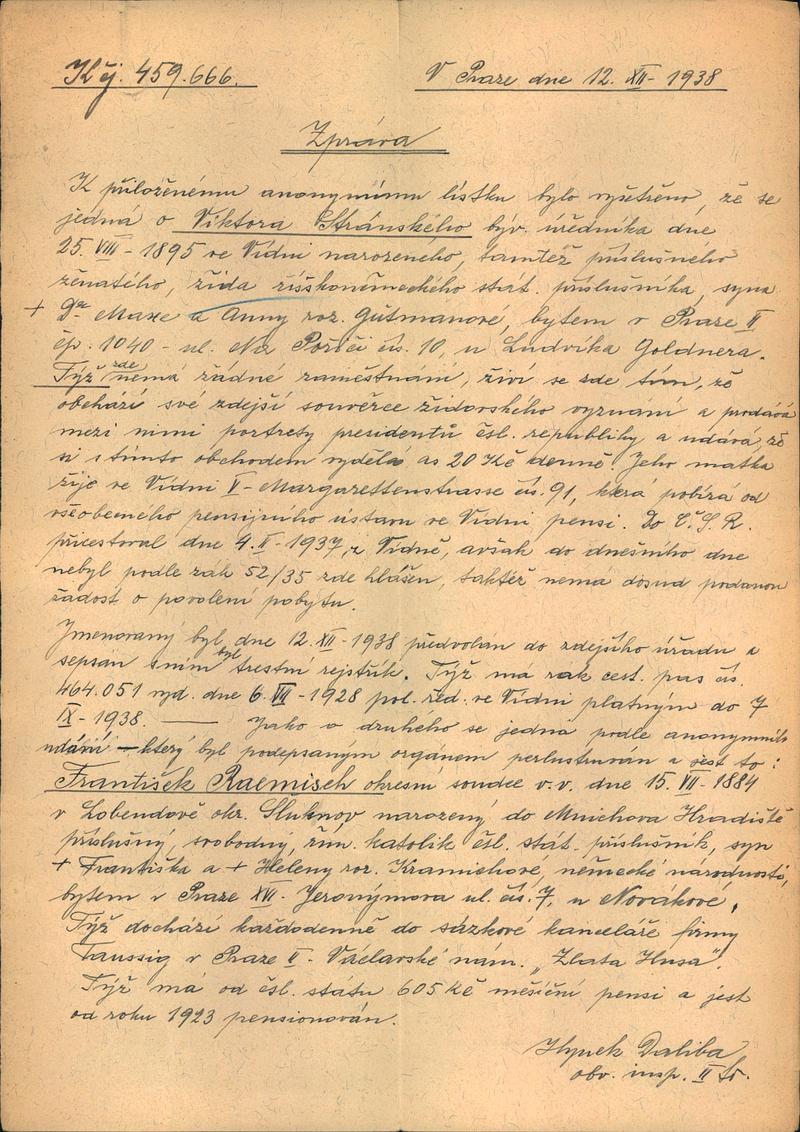 K čj. 459.666.
V Praze dne 12. XII - 1938
Zpráva
K přiloženému anonymnímu lístku bylo vyšetřeno, že se
jedná o Viktora Stránského býv. úředníka dne
25. VIII - 1895 ve Vídni narozeného, tamtéž příslušného
ženatého, žida říšskoněmeckého stát. příslušníka, syna
+ Dra Maxe a Anny roz. Gutmanové, bytem v Praze II
čp. 1040 - ul. Na Poříčí čís. 10, u Ludvíka Goldnera.
Týž zde nemá žádné zaměstnání, živí se zde tím, že
obchází své zdejší souvěrce židovského vyznání a prodává
mezi nimi portrety presidentů čsl. republiky a udává, že
si tímto obchodem vydělá as 20 Kč denně. Jeho matka
žije ve Vídni V - Margarettenstrasse čís. 91, která pobírá od
všeobecného pensijního ústavu ve Vídni pensi. Do Č.S.R.
přicestoval dne 4. II - 1937 z Vídně, avšak do dnešního dne
nebyl podle zák 52/35 zde hlášen, taktéž nemá dosud podanou
žádost o povolení pobytu.
Jmenovaný byl dne 12. XII - 1938 předvolán do zdejšího úřadu a
sepsán s ním byl trestní rejstřík. Týž má rak. cest. pas čís.
464.051 vyd. dne 6. VII - 1928 pol. řed. ve Vídni platným do 7
IX - 1938. — Jako o druhého se jedná podle anonymního
udání — který byl podepsaným orgánem perlustrován a jest to:
František Raemisch okresní soudce v.v. dne 15. VII - 1884
v Lobendově okr. Šluknov narozený, do Mnichova Hradiště
příslušný, svobodný, řím. katolík čsl. stát. příslušník, syn
+ Františka a + Heleny roz. Kramichové, německé národnosti,
bytem v Praze XVI. Jeronýmova ul. čís. 7, u Novákové.
Týž dochází každodenně do sázkové kanceláře firmy
Taussig v Praze II - Václavské nám. „Zlatá Husa".
Týž má od čsl. státu 605 Kč měsíční pensi a jest
od roku 1923 pensionován.
Hynek Daliba
obv. insp. II